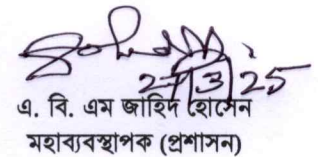 27/3/25
এ. বি. এম জাহিদ হোসেন
মহাব্যবস্থাপক (প্রশাসন)